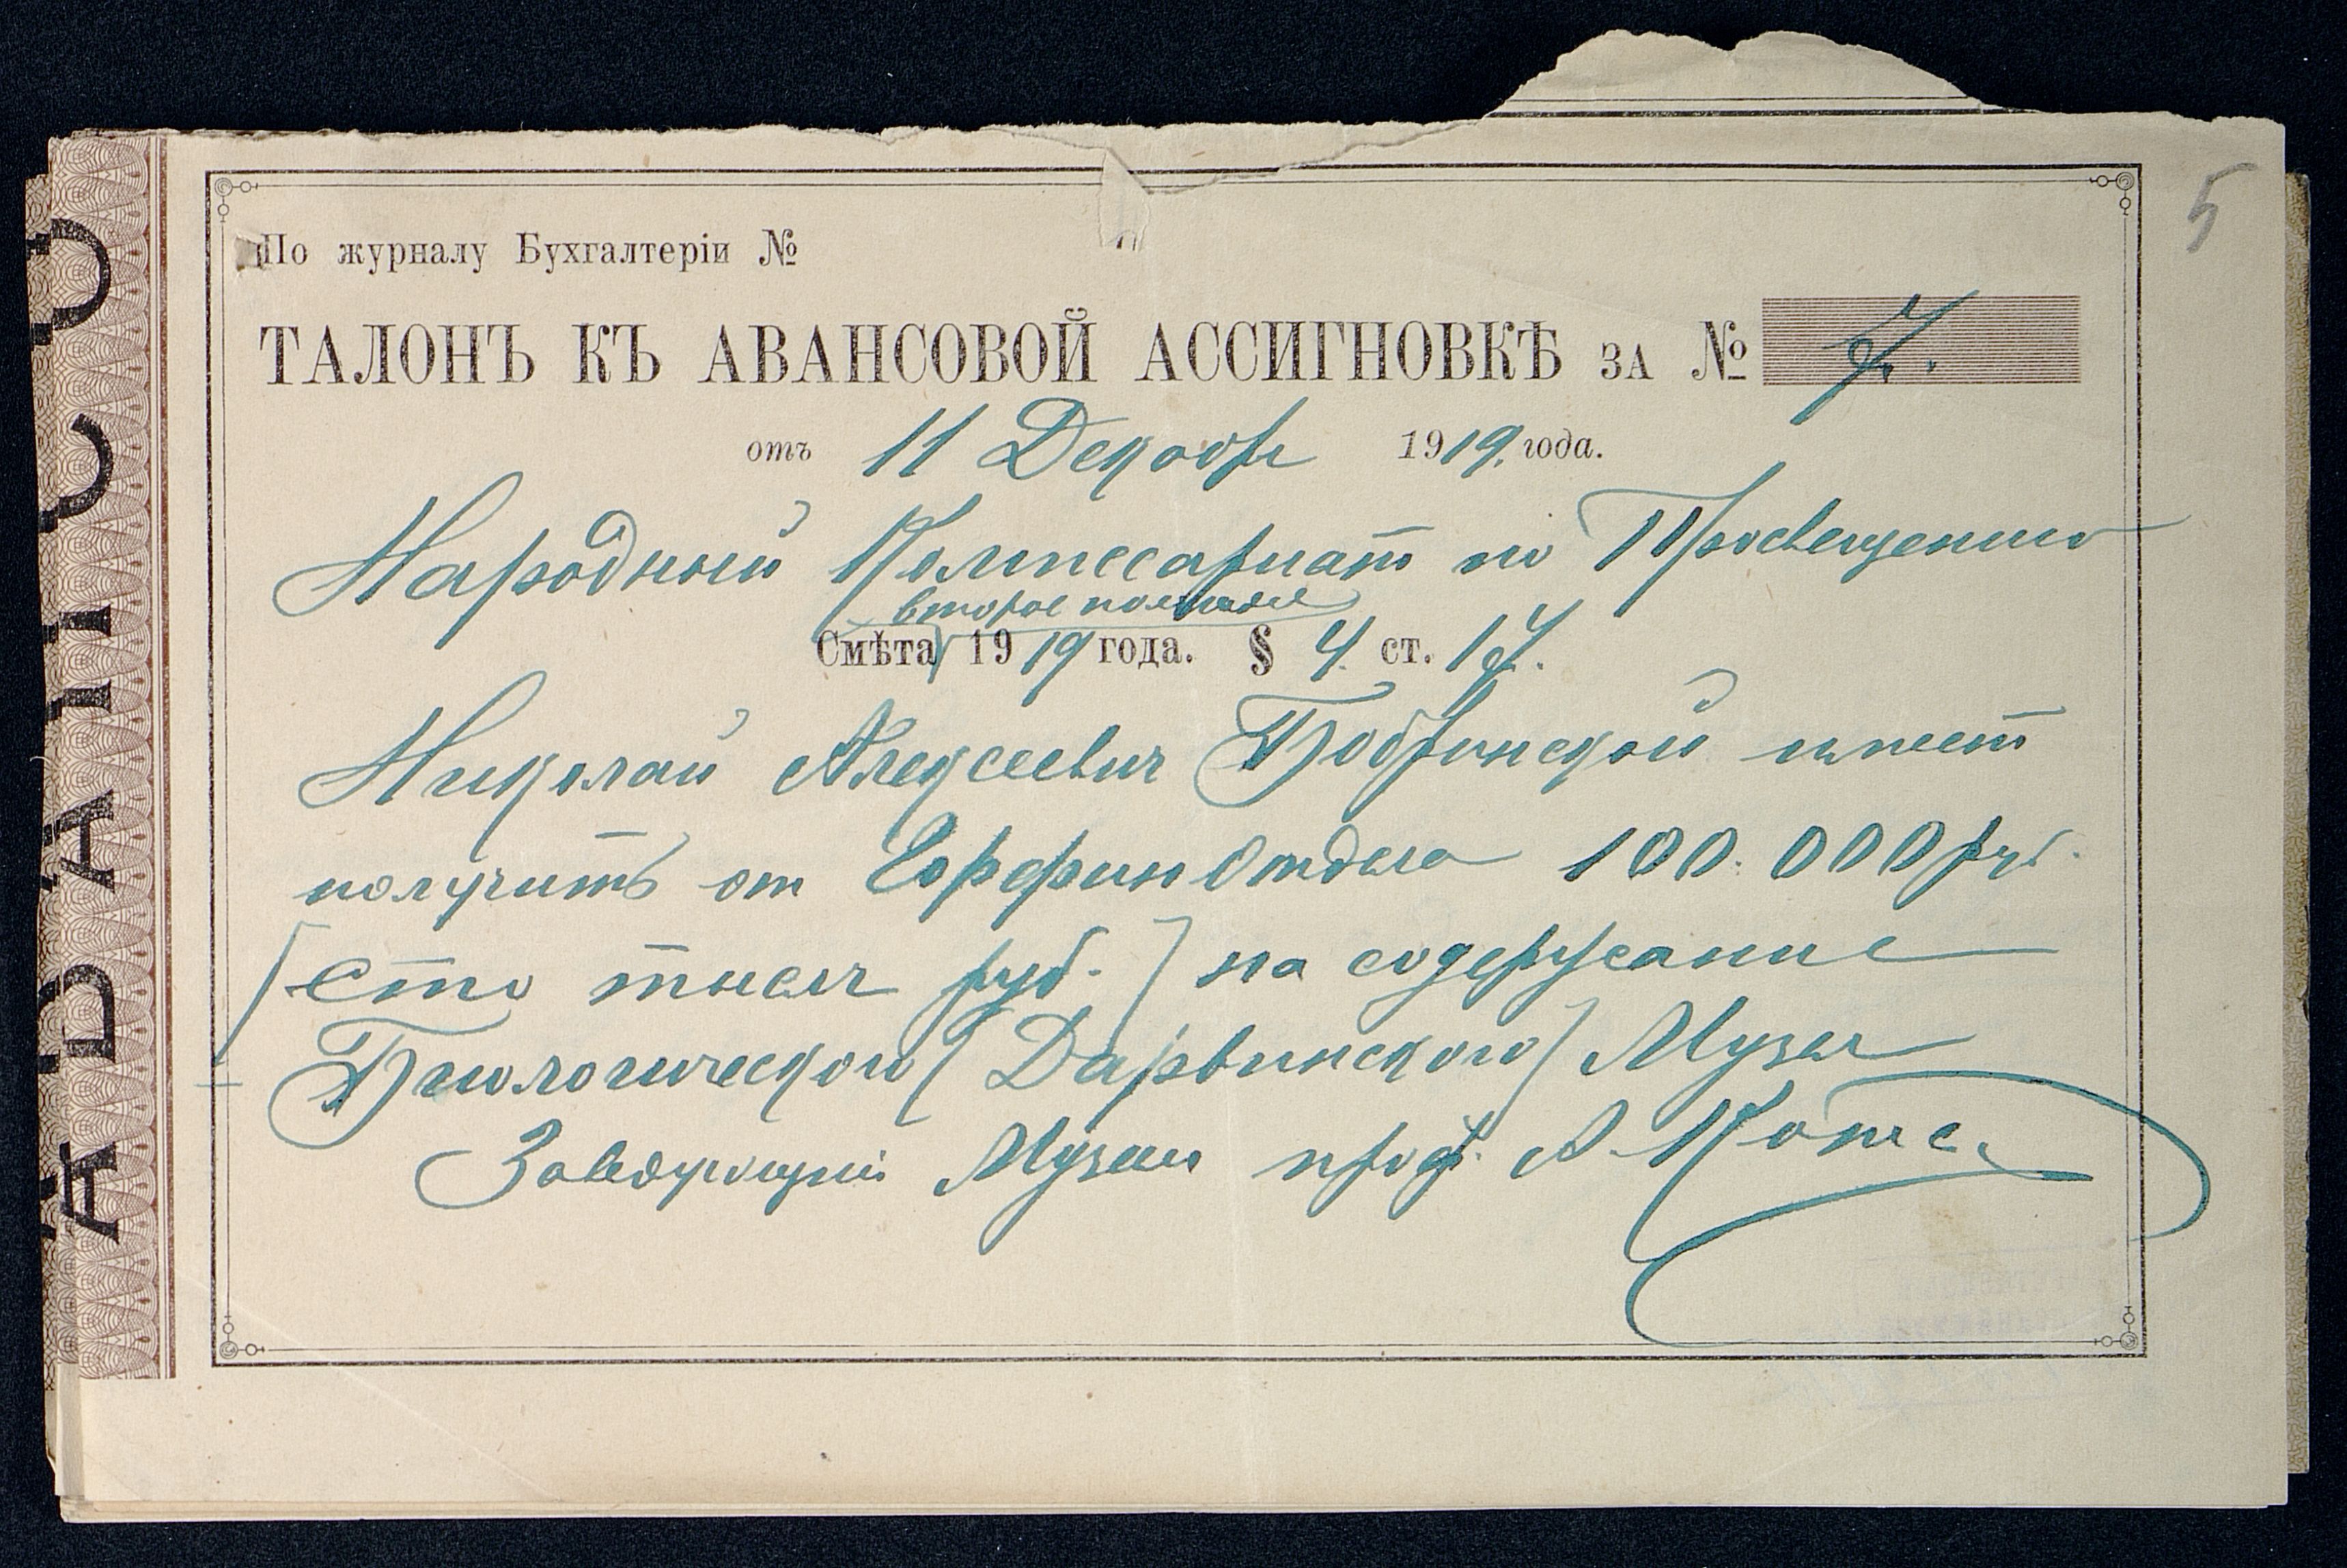 5
По журналу Бухгалтеріи №
ТАЛОНЪ КЪ АВАНСОВОЙ АССИГНОВКѢ ЗА № 7.
отъ 11 Декабр 1919. года.
Народный Комиссариат по Просвещению
второе полугодие
Смѣта 1919 года. § 4. ст. 17.
Николай Алексеевич Бобринской имеет
получить от ГорфинОтдела 100.000 руб.
(сто тысяч руб.) на содержание
Биологического (Дарвинского) Музея
Заведующий Музеем проф. А. Котс.